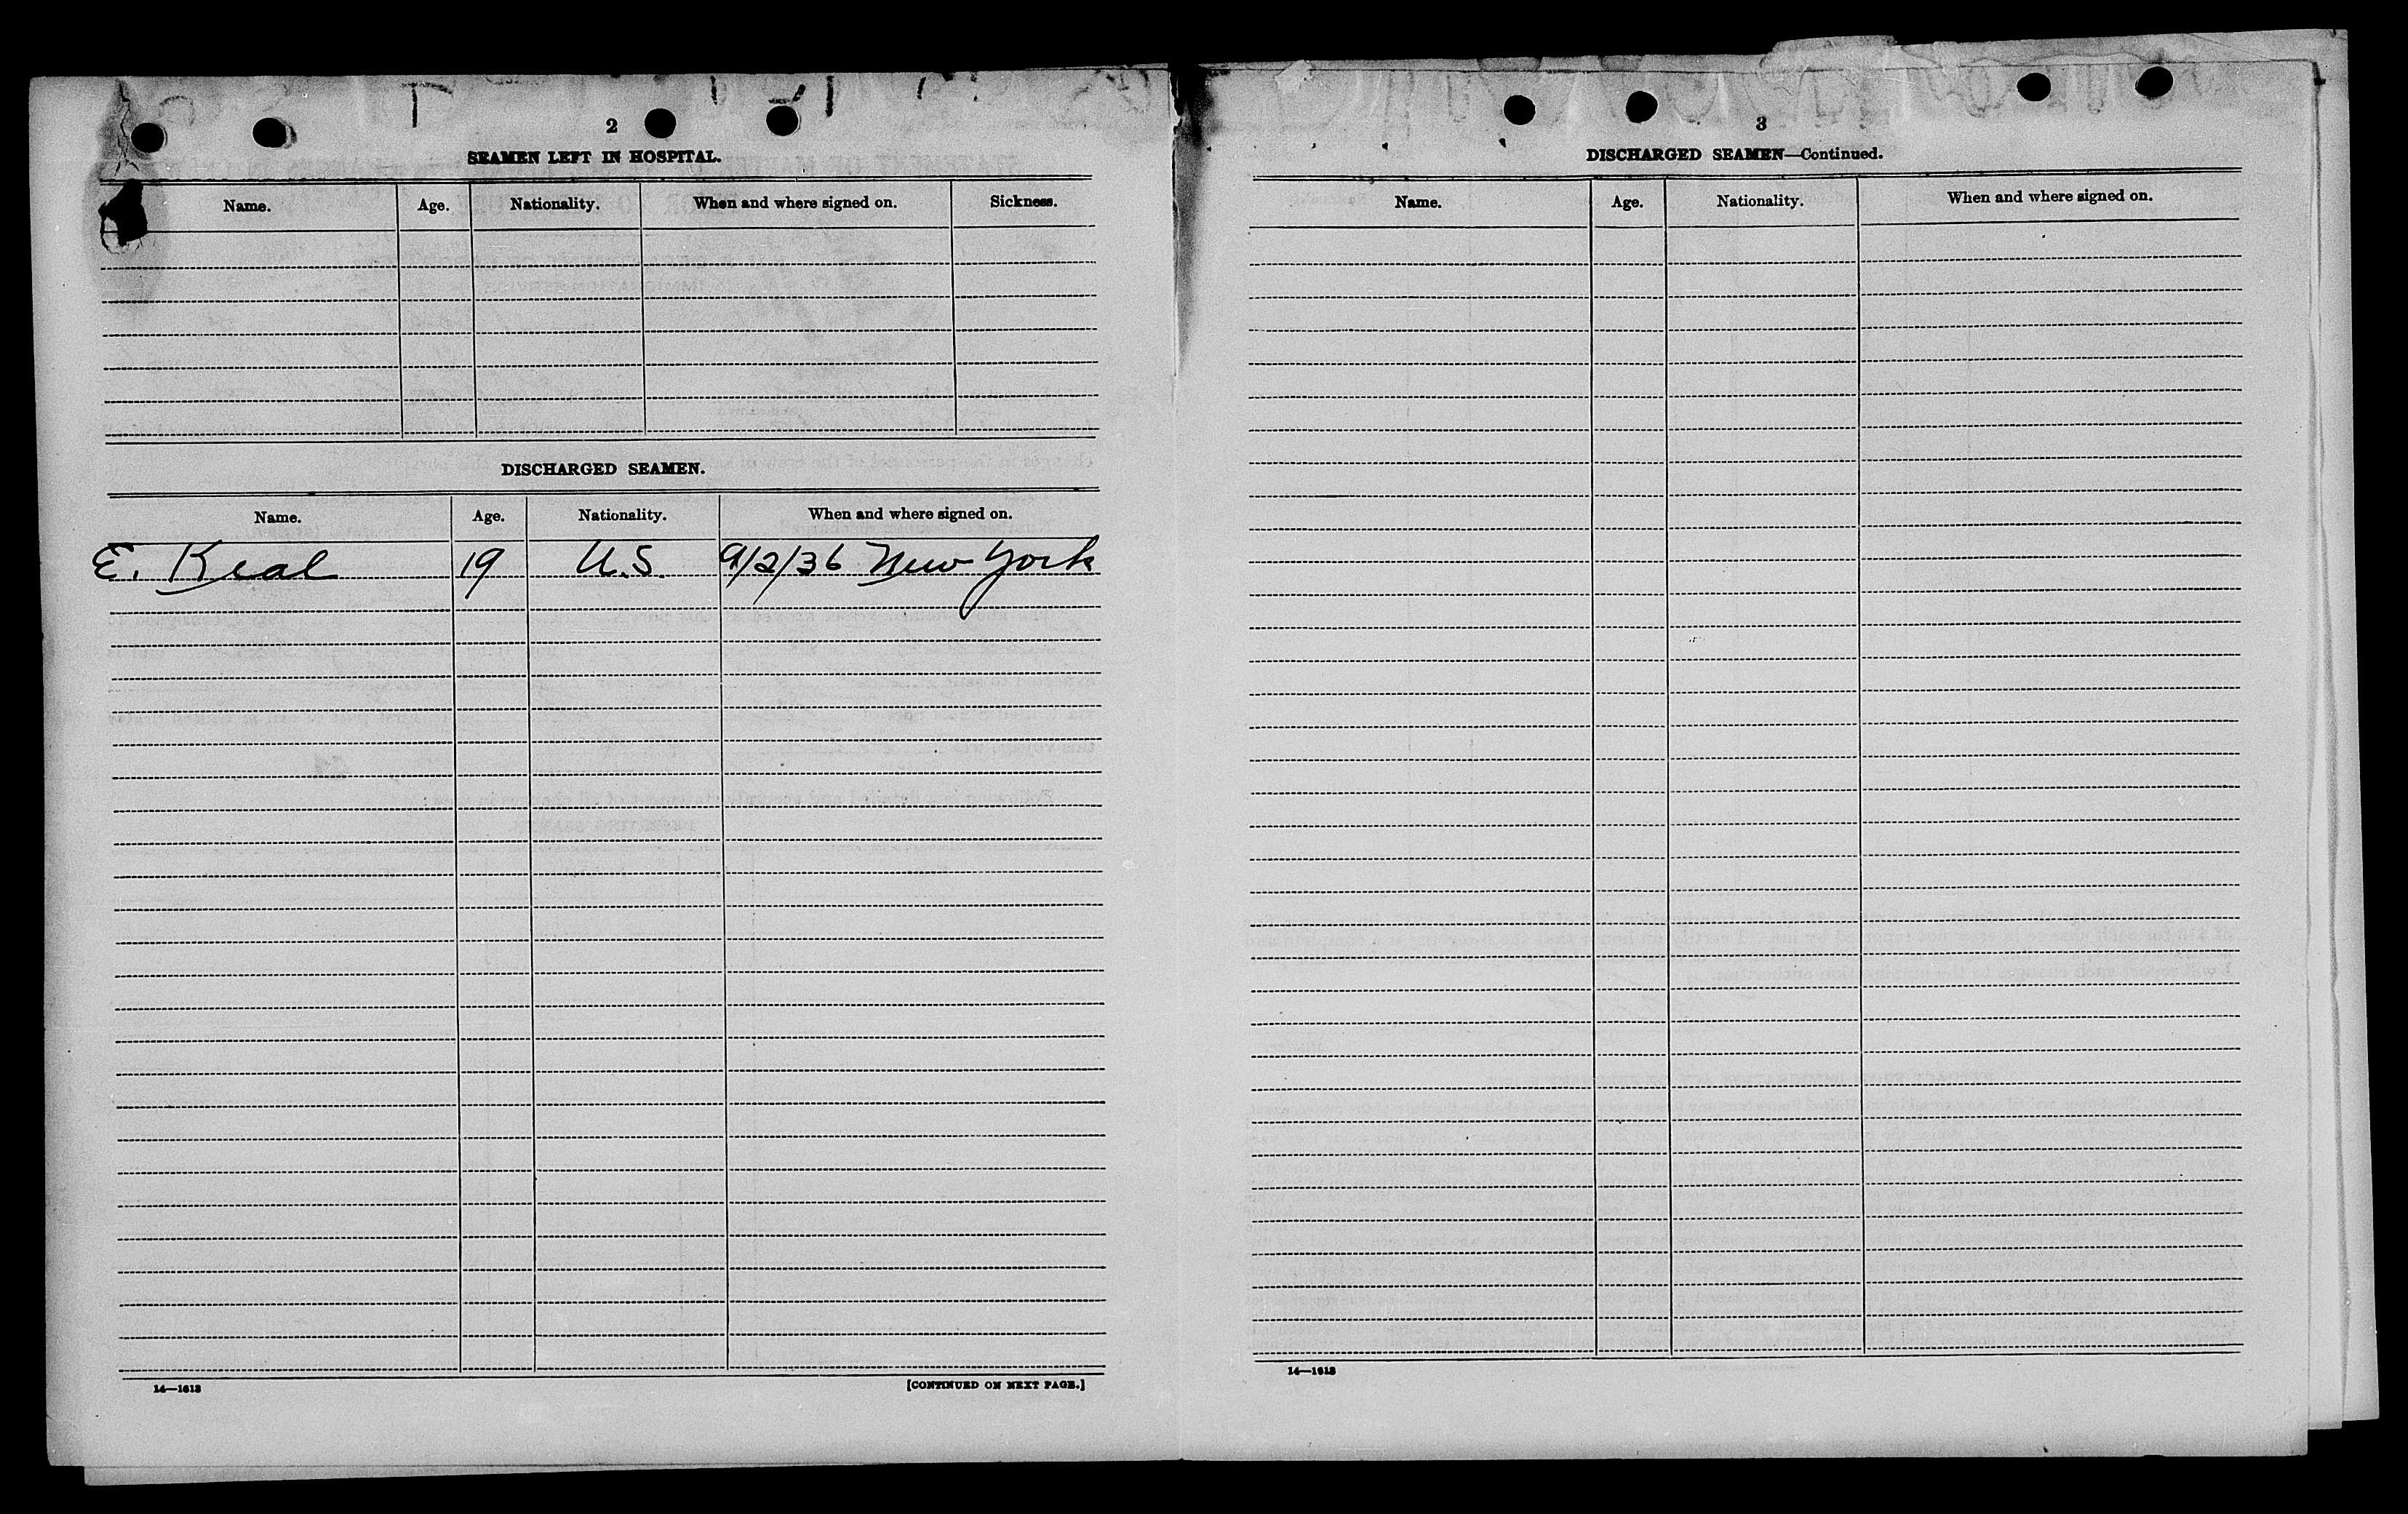 2
SEAMEN LEFT IN HOSPITAL.
Name. Age. Nationality. When and where signed on. Sickness.
DISCHARGED SEAMEN.
Name. Age. Nationality. When and where signed on.
E. Keal 19 U.S. 9/2/36 New York
14—1613
[CONTINUED ON NEXT PAGE.]
3
DISCHARGED SEAMEN—Continued.
Name. Age. Nationality. When and where signed on.
14—1613